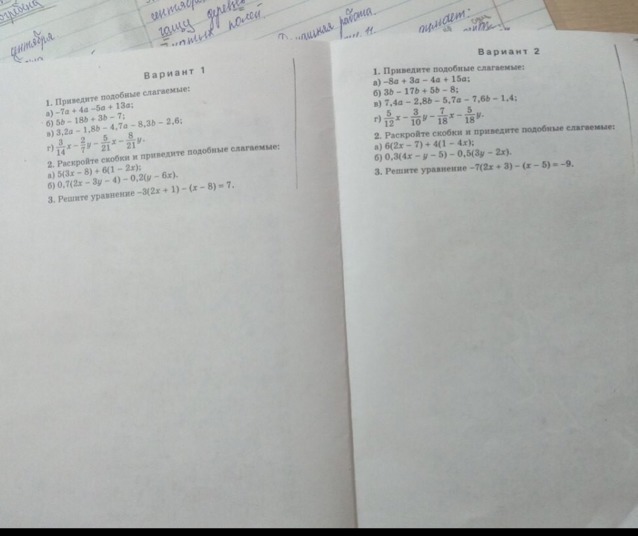 сентября
чащу деревьев
полей.
сентября
Домашняя работа.
Вариант 1
1. Приведите подобные слагаемые:
а) –7a + 4a –5a + 13a;
б) 5b – 18b + 3b – 7;
в) 3,2a – 1,8b – 4,7a – 8,3b – 2,6;
г) 3/14 x – 2/7 y – 5/21 x – 8/21 y.
2. Раскройте скобки и приведите подобные слагаемые:
а) 5(3x – 8) + 6(1 – 2x);
б) 0,7(2x – 3y – 4) – 0,2(y – 6x).
3. Решите уравнение –3(2x + 1) – (x – 8) = 7.
Вариант 2
1. Приведите подобные слагаемые:
а) –8a + 3a – 4a + 15a;
б) 3b – 17b + 5b – 8;
в) 7,4a – 2,8b – 5,7a – 7,6b – 1,4;
г) 5/12 x – 3/10 y – 7/18 x – 5/18 y.
2. Раскройте скобки и приведите подобные слагаемые:
а) 6(2x – 7) + 4(1 – 4x);
б) 0,3(4x – y – 5) – 0,5(3y – 2x).
3. Решите уравнение –7(2x + 3) – (x – 5) = –9.